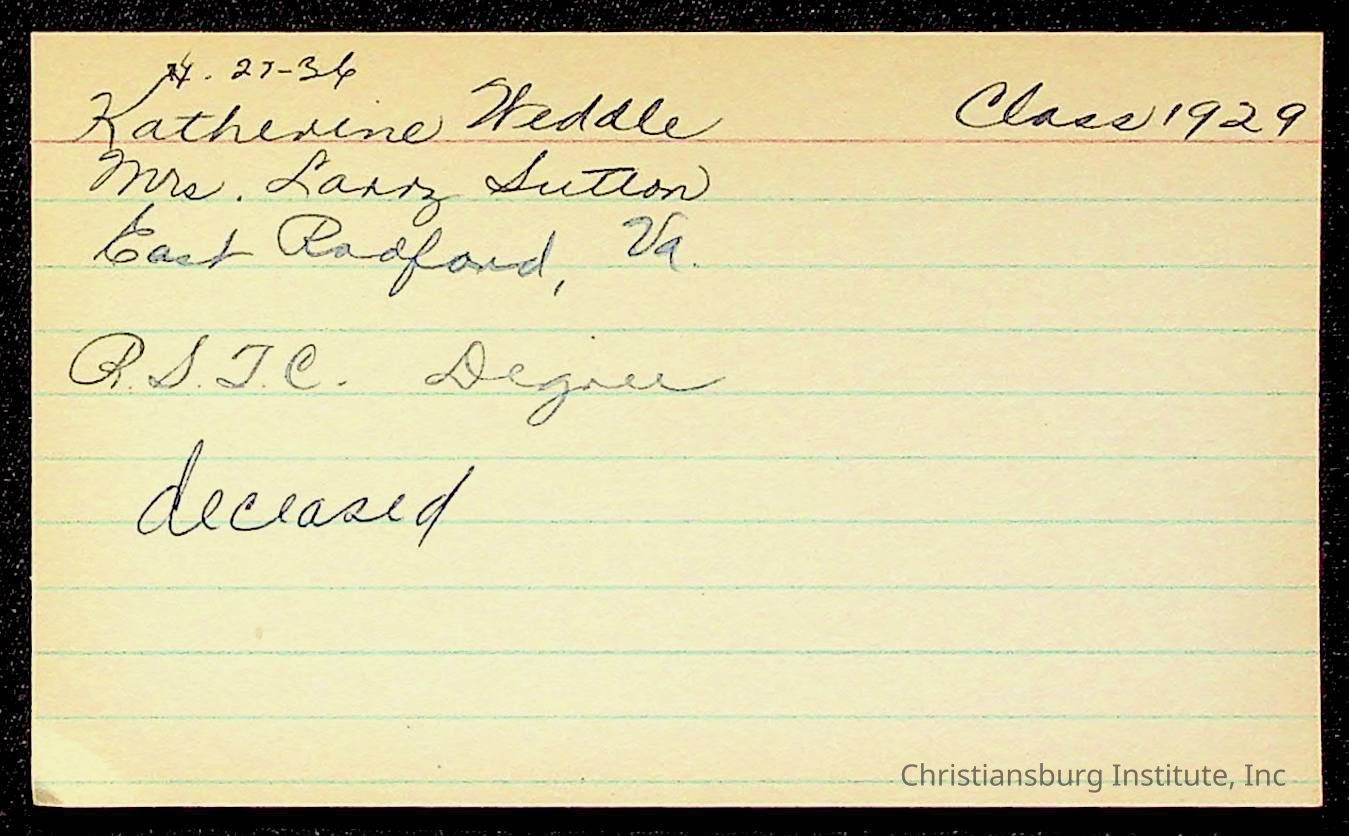 27-36
Katherine Weddle Class 1929
Mrs. Larry Sutton
East Radford, Va.
R.S.T.C. Degree
deceased
Christiansburg Institute, Inc